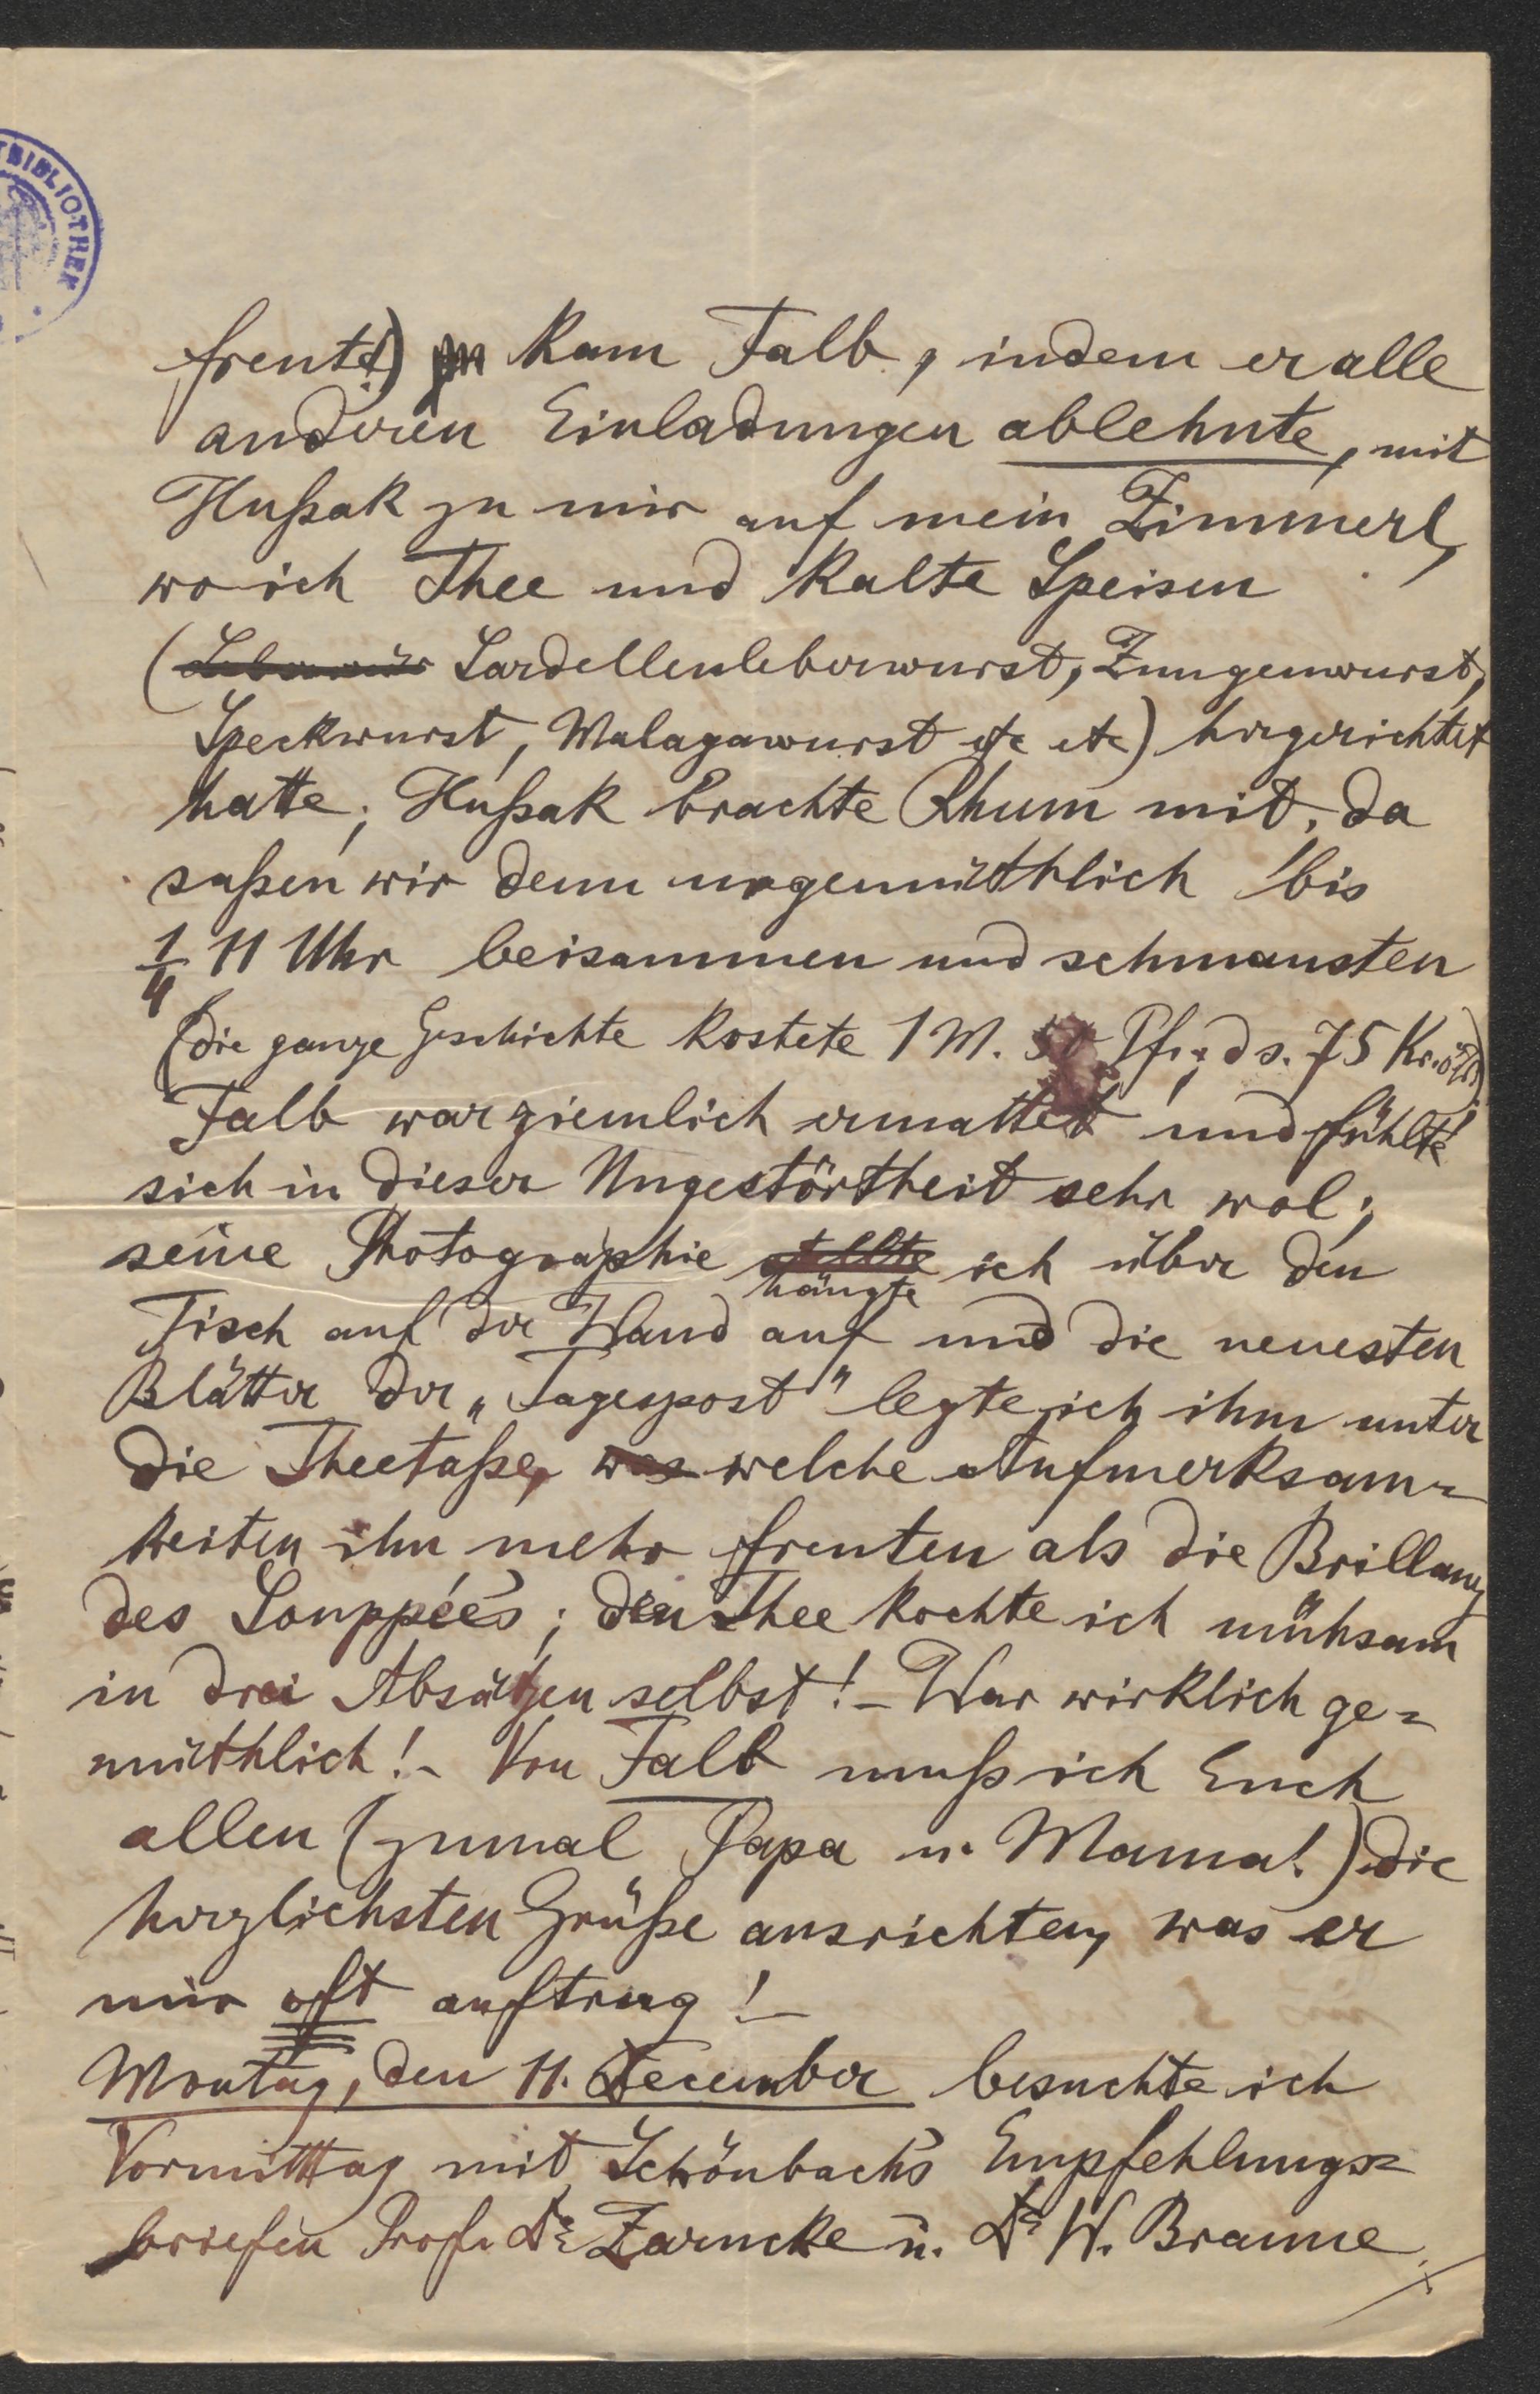 TBIBLIOTHEK
freute) kam Falb, indem er alle
anderen Einladungen ablehnte, mit
Hußak zu mir auf mein Zimmerl,
wo ich Thee und kalte Speisen
(Leberwür Sardellenleberwurst, Zungenwurst,
Speckwurst, Malagawurst etc etc) hergerichtet
hatte; Hußak brachte Rhum mit, da
saßen wir denn urgemüthlich bis
1/4 11 Uhr beisammen und schmausten
(die ganze Geschichte kostete 1 M. 50 Pf., d s. 75 Kr.
Falb war ziemlich ermattet und fühlte
sich in dieser Ungestörtheit sehr wol;
seine Photographie stellte ich über den
hängte
Tisch auf der Wand auf und die neuesten
Blätter der „Tagespost" legte ich ihm unter
die Theetaße, was welche Aufmerksam=
keiten ihn mehr freuten als die Brillanz
des Souppées; den Thee kochte ich mühsam
in drei Absätzen selbst! – War wirklich ge=
müthlich! – Von Falb muß ich Euch
allen (zumal Papa u. Mama!) die
herzlichsten Grüße ausrichten, was er
mir oft auftrug! –
Montag, den 11. December besuchte ich
Vormittag mit Schönbach's Empfehlungs=
briefen Prof. Dr Zarncke u. Dr W. Braune.